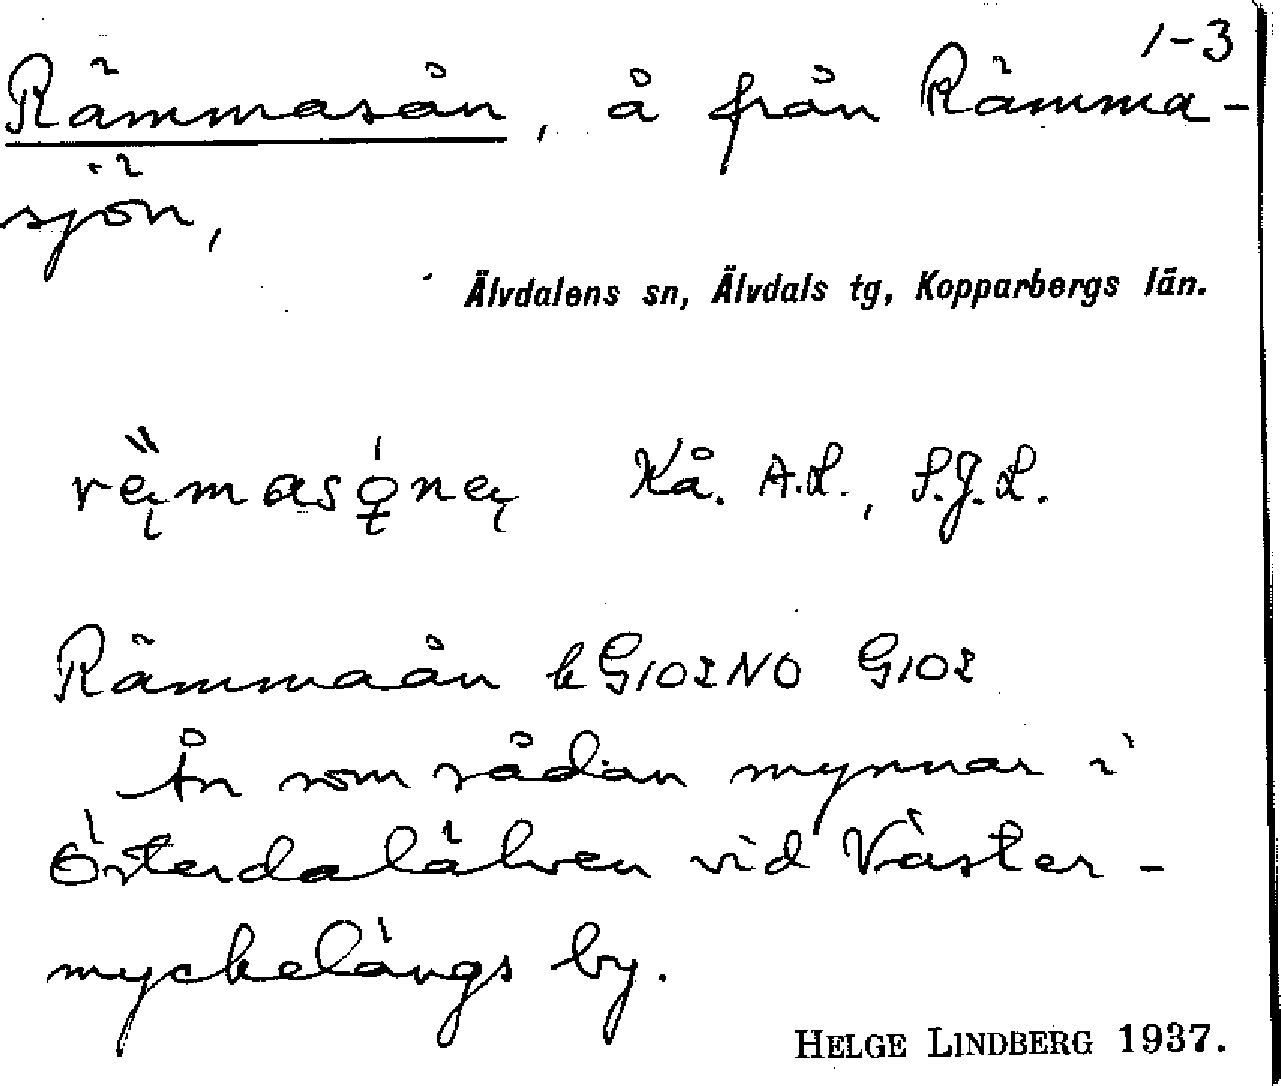 1-3
Rämmasån, å från Rämma-
sjön,
Älvdalens sn, Älvdals tg, Kopparbergs län.
Kå. A.L., S.J.L.
Rämmaån b G102NO G102
Ån som sådan mynnar i
Österdalälven vid Väster-
myckelängs by.
HELGE LINDBERG 1937.